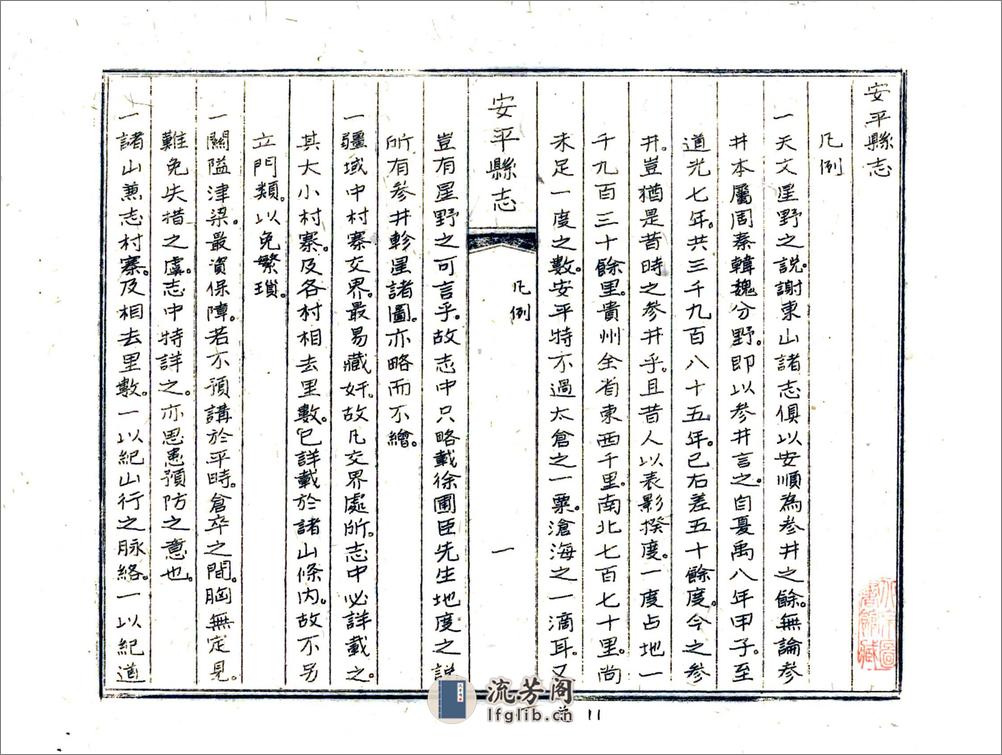 安平縣志
凡例
一天文星野之說。謝東山諸志俱以安順為參井之餘。無論參
井本屬周秦韓魏分野。即以參井言之。自夏禹八年甲子。至
道光七年。共三千九百八十五年。已右差五十餘度。今之參
井。豈猶是昔時之參井乎。且昔人以表影揆度。一度占地一
千九百三十餘里。貴州全省東西千里。南北七百七十里。尚
未足一度之數。安平特不過太倉之一粟。滄海之一滴耳。又
安平縣志
凡例
一
豈有星野之可言乎。故志中只略載徐圃臣先生地度之說
所有參井軫星諸圖。亦略而不繪。
一疆域中村寨交界。最易藏奸。故凡交界處所。志中必詳載之。
其大小村寨。及各村相去里數。已詳載於諸山條內。故不另
立門類。以免繁瑣。
一關隘津梁。最資保障。若不預講於平時。倉卒之間。胸無定見。
難免失措之虞。志中特詳之。亦思患預防之意也。
一諸山兼志村寨。及相去里數。一以紀山行之脉絡。一以紀道
流芳阁
lfglib.cn
11